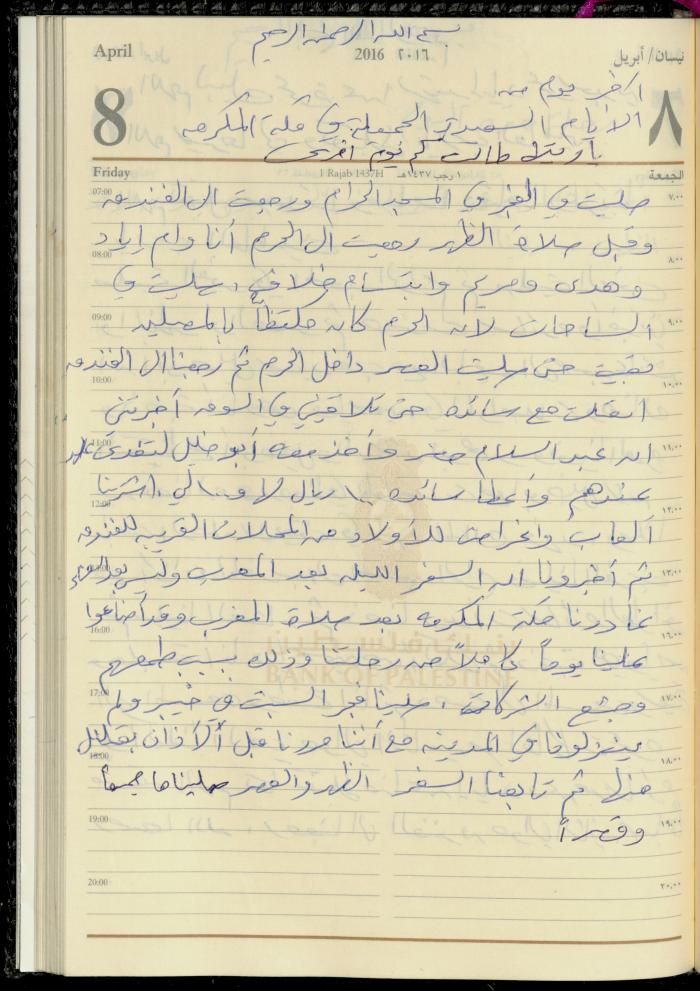 بسم الله الرحمن الرحيم
April 2016 ٢٠١٦ نيسان/ أبريل
8 ٨
آخر يوم من
الأيام السعيدة الجميلة في مكة المكرمه
يا ريتك طالت كم يوم أخرى
Friday 1 Rajab 1437H ١ رجب ١٤٣٧هـ الجمعة
07:00 ٧:٠٠
صليت في الفجر في المسجد الحرام ورجعت الى الفندقه
وقبل صلاة الظهر رجعت الى الحرم أنا وام اياد
08:00 ٨:٠٠
وهدى ومريم وابتسام خلاف، صليت في
09:00 ٩:٠٠
الساحات لان الحرم كان مكتظاً بالمصلين
بقيت حتى صليت العصر داخل الحرم ثم رجعنا الى الفندق
10:00 ١٠:٠٠
اتصلت مع سائده حتى تلاقيني في السوق أخبرتني
11:00 ١١:٠٠
ان عبد السلام حضر وأخذ معه أبو خليل لتغدى
عندهم وأعطا سائده ريال لها و لي، اشترينا
12:00 ١٢:٠٠
ألعاب واغراض للأولاد من المحلات القريبه للفندق
١٣:٠٠
ثم أخبرونا ان السفر الليله بعد المغرب وليس بعد العشاء
غادرنا مكة المكرمه بعد صلاة المغرب وقد أضاعوا
16:00 ١٦:٠٠
علينا يوماً كاملاً من رحلتنا وذلك بسبب طمعهم
بنك فلسطين
BANK OF PALESTINE
17:00 ١٧:٠٠
وجشع الشركات، صلينا فجر السبت في خيبر ولم
ينزلونا في المدينه مع أننا مررنا قبل الآذان بقليل
18:00 ١٨:٠٠
منها ثم تابعنا السفر الظهر والعصر صليناها جمعاً
19:00 ١٩:٠٠
وقصراً
20:00 ٢٠:٠٠